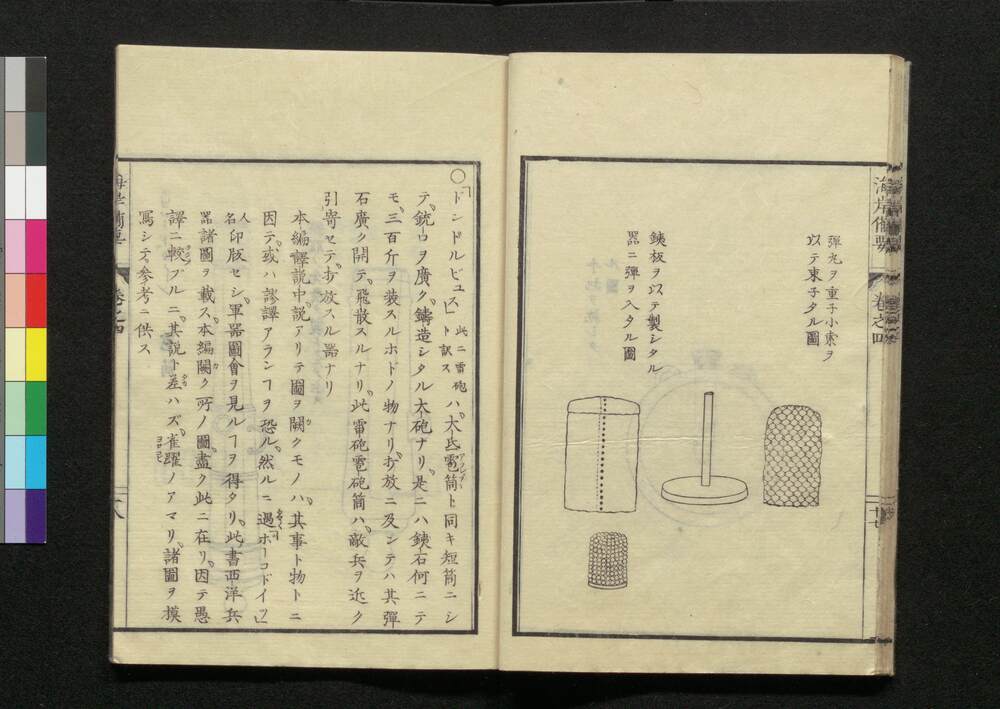 海岸備要
卷之四
十七
彈丸ヲ重子小索ヲ
以テ束子タル圖
銕板ヲ以テ製シタル
器ニ彈ヲ入タル圖
○「ドンドルビュス」此ニ雷砲ト訳スハ大氐雹筒ト同キ短筒ニシ
テ銃口ヲ廣ク鑄造シタル大砲ナリ是ニハ銕石何ニテ
モ三百介ヲ装スルホドノ物ナリ打放ニ及シテハ其彈
石廣ク開テ飛散スルナリ此雷砲雹砲筒ハ敵兵ヲ近ク
引寄セテ打放スル器ナリ
本編譯説中説アリテ圖ヲ闕クモノハ其事ト物トニ
因テ或ハ謬譯アランヿヲ恐ル然ルニ過「ホーコドイフ」
人名印版セシ軍器圖會ヲ見ルヿヲ得タリ此書西洋兵
器諸圖ヲ載ス本編闕ク所ノ圖盡ク此ニ在リ因テ愚
譯ニ較ブルニ其説ト差ハズ雀躍ノアマリ諸圖ヲ摸
寫シテ參考ニ供ス
卷之四